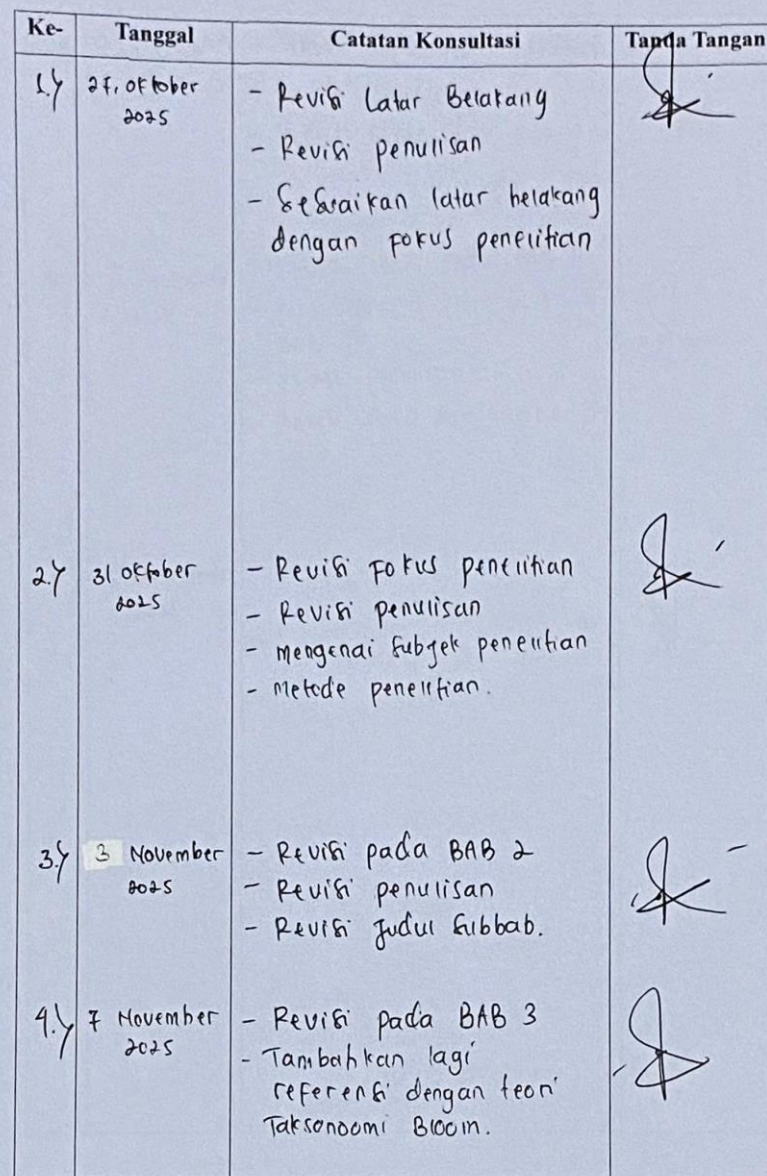 Ke- Tanggal Catatan Konsultasi Tanda Tangan
1. 27, oktober - Revisi Latar Belakang
2025
- Revisi penulisan
- Sesuaikan latar belakang
dengan Fokus penelitian
2. 31 oktober - Revisi Fokus penelitian
2025 - Revisi penulisan
- mengenai Subjek penelitian
- Metode penelitian.
3. 3 November - Revisi pada BAB 2
2025 - Revisi penulisan
- Revisi Judul Subbab.
4. 7 November - Revisi pada BAB 3
2025 - Tambahkan lagi
referensi dengan teori
Taksonoomi Bloom.